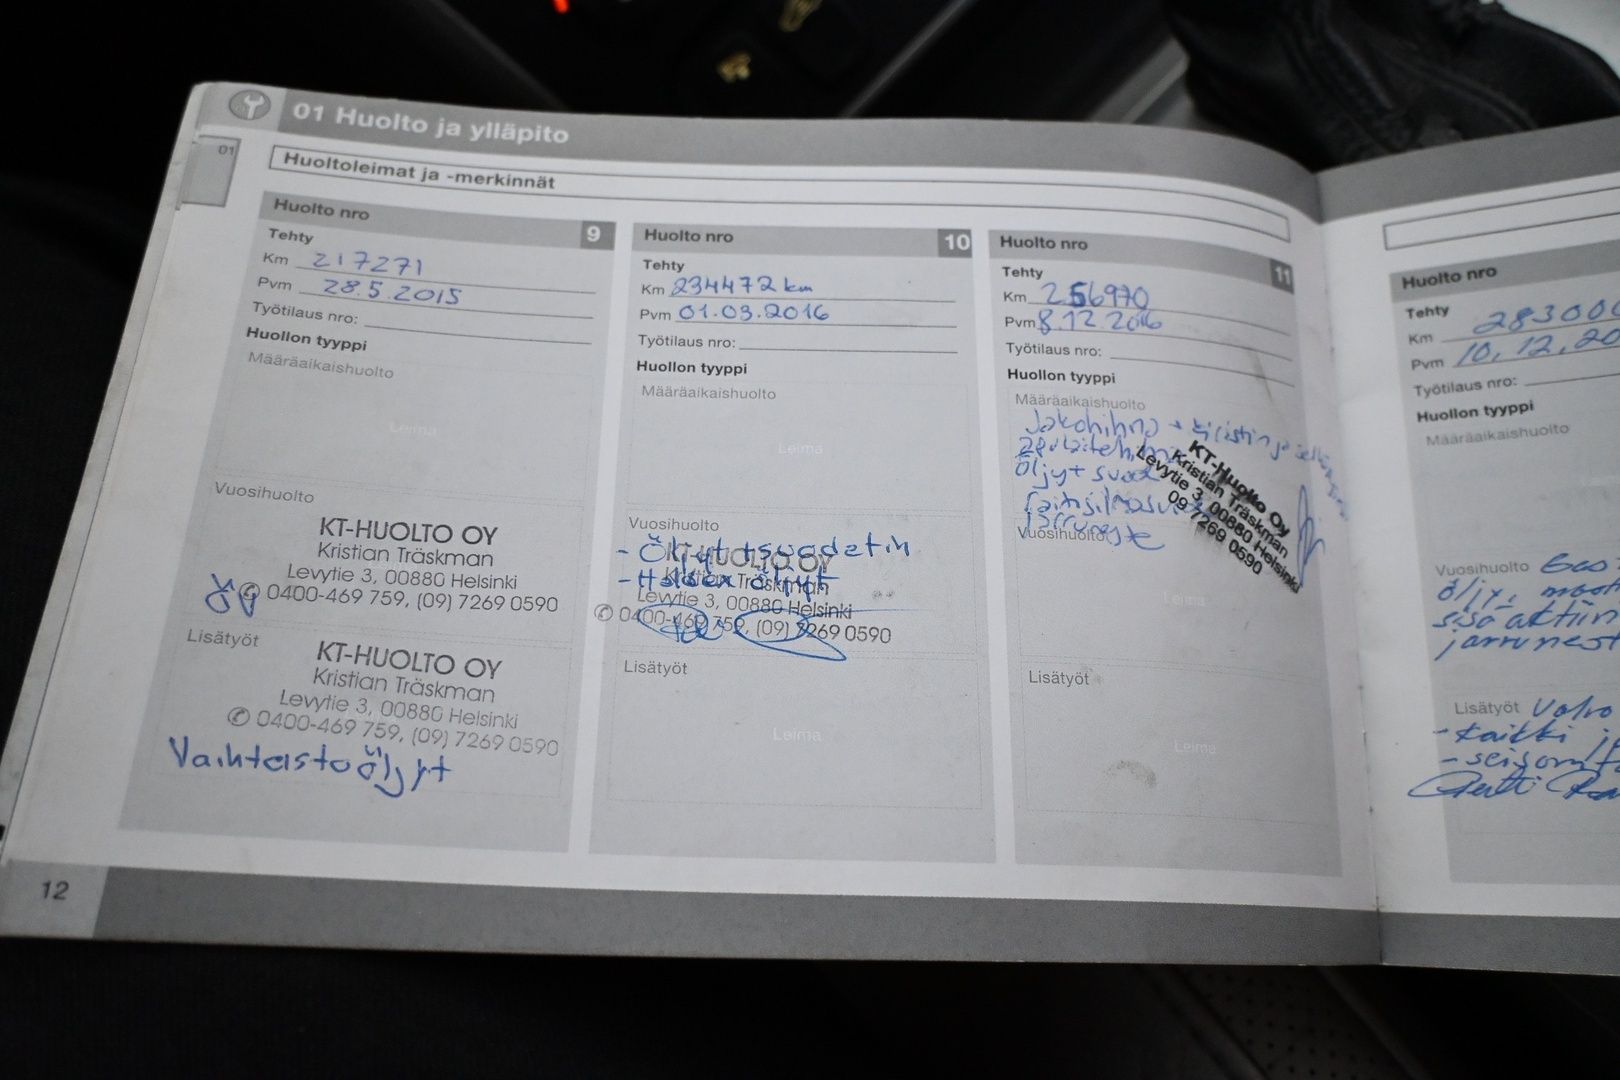 01 Huolto ja ylläpito
01
Huoltoleimat ja -merkinnät
Huolto nro 9
Tehty
Km 217271
Pvm 28.5.2015
Työtilaus nro:
Huollon tyyppi
Määräaikaishuolto
Leima
Vuosihuolto
KT-HUOLTO OY
Kristian Träskman
Levytie 3, 00880 Helsinki
0400-469 759, (09) 7269 0590
Lisätyöt
KT-HUOLTO OY
Kristian Träskman
Levytie 3, 00880 Helsinki
0400-469 759, (09) 7269 0590
Vaihteistoöljyt
Huolto nro 10
Tehty
Km 234472 km
Pvm 01.03.2016
Työtilaus nro:
Huollon tyyppi
Määräaikaishuolto
Leima
Vuosihuolto
- Öljyt + suodatin
KT-HUOLTO OY
- Haldex öljyt
Kristian Träskman
Levytie 3, 00880 Helsinki
0400-469 759, (09) 7269 0590
Lisätyöt
Leima
Huolto nro 11
Tehty
Km 256970
Pvm 8.12.2016
Työtilaus nro:
Huollon tyyppi
Määräaikaishuolto
Jakohihna + kiristin ja
Öljyt
Jarruneste
KT-Huolto Oy
Kristian Träskman
Levytie 3, 00880 Helsinki
09 7269 0590
Vuosihuolto
Leima
Lisätyöt
Leima
Huolto nro
Tehty
Km 283000
Pvm 10.12.20
Työtilaus nro:
Huollon tyyppi
Määräaikaishuolto
Vuosihuolto
öljy,
jarrunest
Lisätyöt Volvo
- kaikki
12